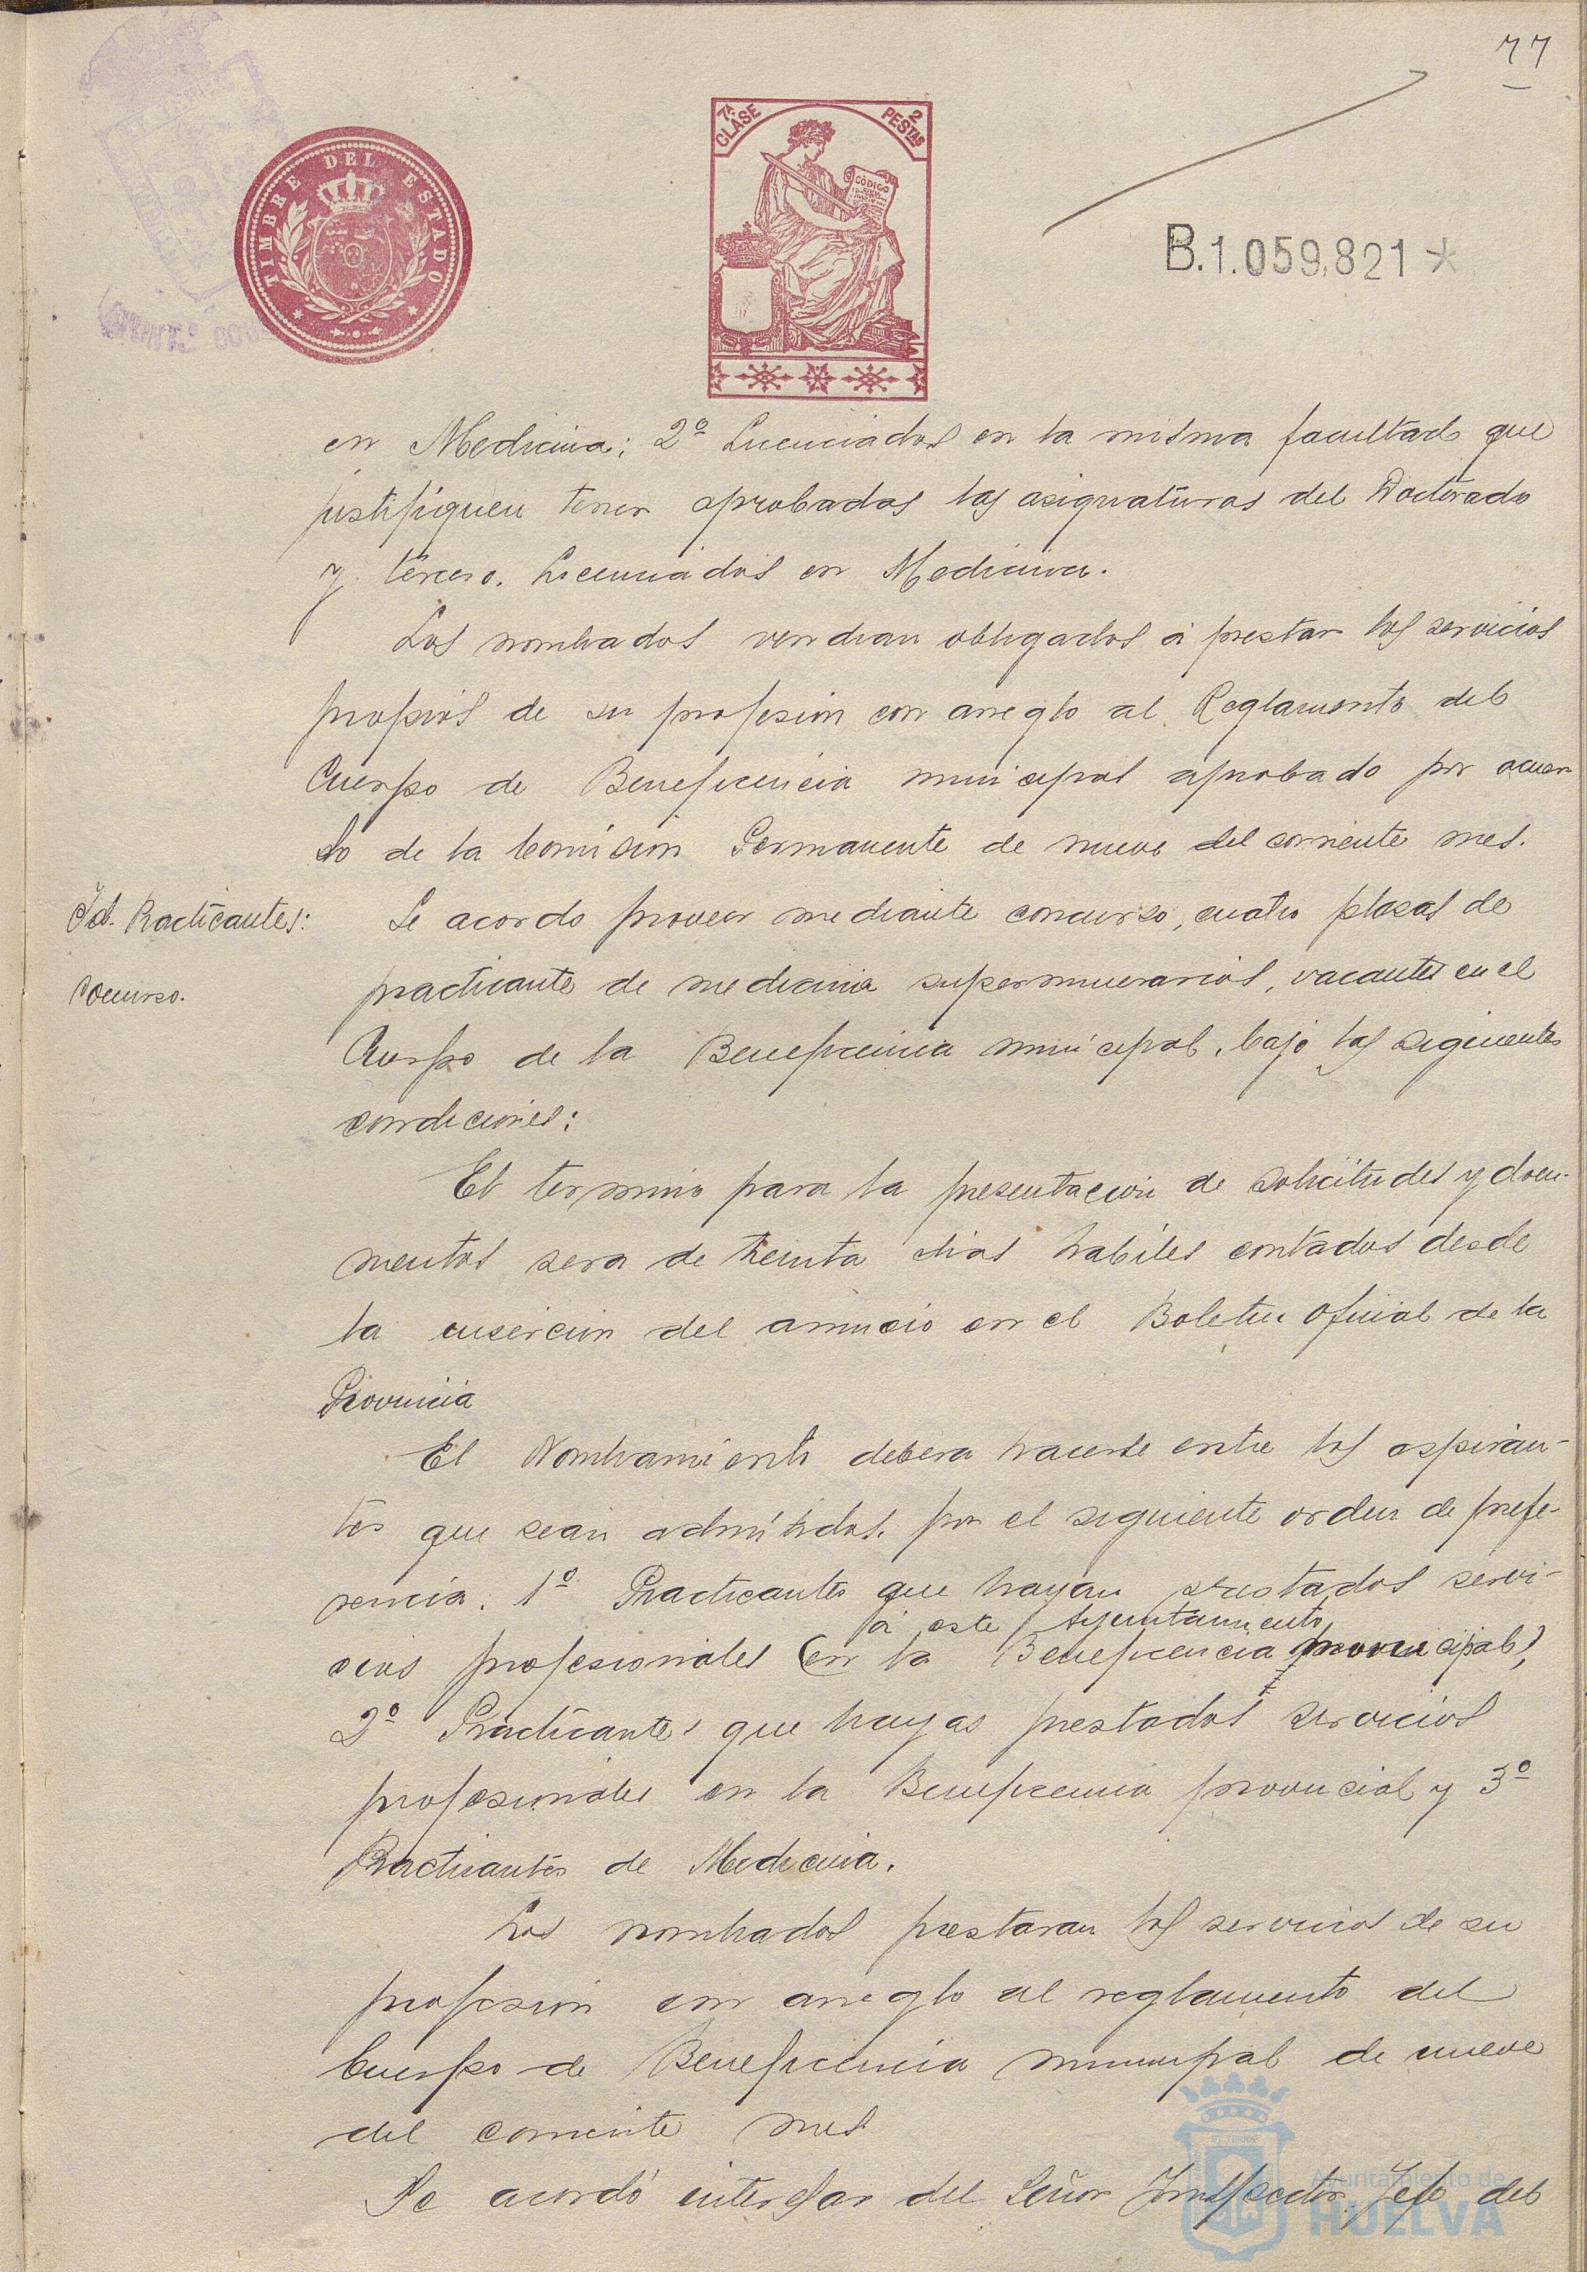 77
7ª CLASE
2 PESTAS
CÓDIGO
TIMBRE DEL ESTADO
B.1.059,821*
en Medicina; 2º Licenciados en la misma facultad que
justifiquen tener aprobadas las asignaturas del Doctorado
y tercero. Licenciados en Medicina.
Los nombrados vendran obligados á prestar los servicios
propios de su profesion con arreglo al Reglamento del
Cuerpo de Beneficencia municipal aprobado por acuer
do de la Comision Permanente de nueve del corriente mes.
Id. Practicantes:
Cocurso.
Se acordo proveer mediante concurso, cuatro plazas de
practicante de medicina supernumerarios, vacantes en el
Cuerpo de la Beneficencia municipal, bajo las siguientes
condiciones:
El termino para la presentacion de solicitudes y docu-
mentos sera de treinta dias habiles contados desde
la insercion del anuncio en el Boletin Oficial de la
Provincia
El Nombramiento debera hacerse entre los aspiran-
tes que sean admitidos, por el siguiente orden de prefe-
rencia. 1º Practicantes que hayan prestados servi-
á este Ayuntamiento
cios profesionales (en la Beneficencia municipal)
2º Practicantes que hayas prestados servicios
profesionales en la Beneficencia provincial y 3º
Practicantes de Medicina.
Los nombrados prestaran los servicios de su
profesion con arreglo al reglamento del
Cuerpo de Beneficencia municipal de nueve
del corriente mes
Se acordó interesar del Señor Inspector Jefe del
Ayuntamiento de
HUELVA